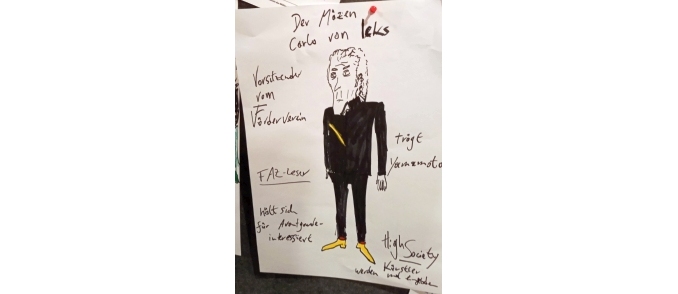 Der Mäzen
Carlo von leks
Vorsitzender
vom
Förderverein
trägt
Yamamoto
FAZ-Leser
hält sich
für Avantgarde-
interessiert
High Society
werden Künstler
und